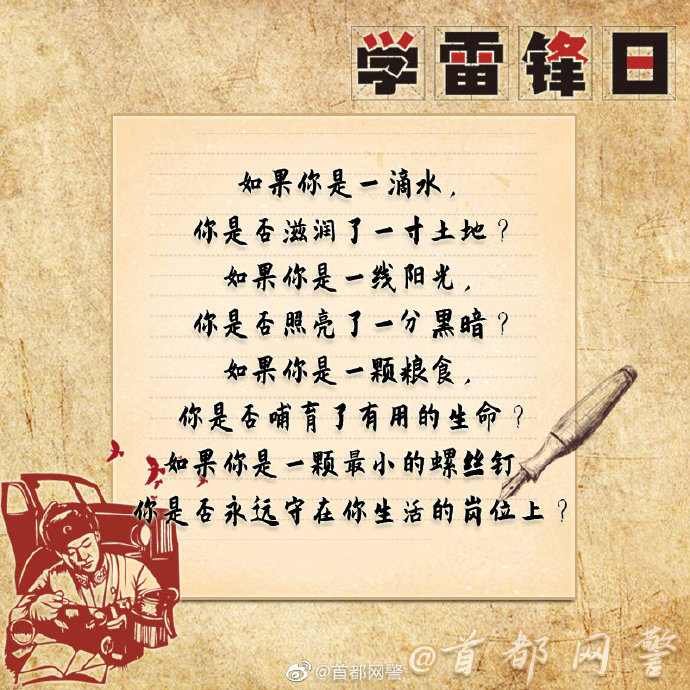 学雷锋日
如果你是一滴水,
你是否滋润了一寸土地?
如果你是一线阳光,
你是否照亮了一分黑暗?
如果你是一颗粮食,
你是否哺育了有用的生命?
如果你是一颗最小的螺丝钉
你是否永远守在你生活的岗位上?
@首都网警
@首都网警